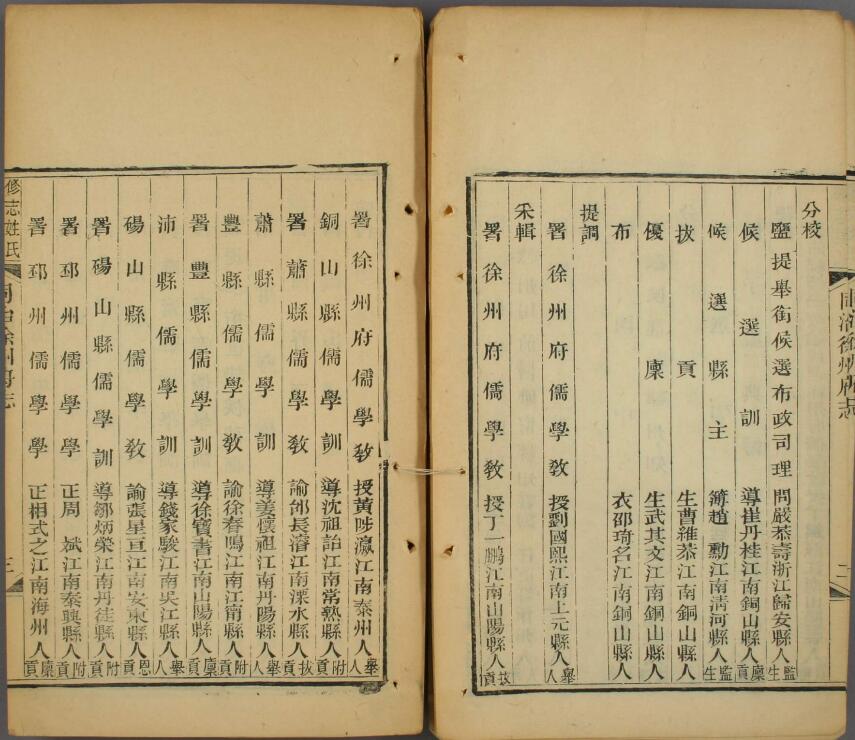 同治徐州府志
二
分校
鹽提舉銜候選布政司理問嚴忝壽浙江歸安縣人監生
候選訓導崔丹桂江南銅山縣人廩貢
候選縣主簿趙勳江南清河縣人監生
拔貢生曹維忝江南銅山縣人
優廩生武其文江南銅山縣人
布衣邵琦名江南銅山縣人
提調
署徐州府儒學敎授劉國熙江南上元縣人舉人
采輯
署徐州府儒學敎授丁一鵬江南山陽縣人拔貢
署徐州府儒學敎授黃陟瀛江南泰州人舉人
銅山縣儒學訓導沈祖詒江南常熟縣人附貢
署蕭縣儒學敎諭邰長濬江南溧水縣人拔貢
蕭縣儒學訓導姜懷祖江南丹陽縣人舉人
豐縣儒學敎諭徐春鳴江南江甯縣人附貢
署豐縣儒學訓導徐寶書江南山陽縣人廩貢
沛縣儒學訓導錢家駿江南吳江縣人舉人
碭山縣儒學敎諭張星亘江南安東縣人恩貢
署碭山縣儒學訓導鄒炳榮江南丹徒縣人附貢
署邳州儒學學正周斌江南泰興縣人附貢
署邳州儒學學正相式之江南海州人廩貢
修志姓氏
同治徐州府志
三